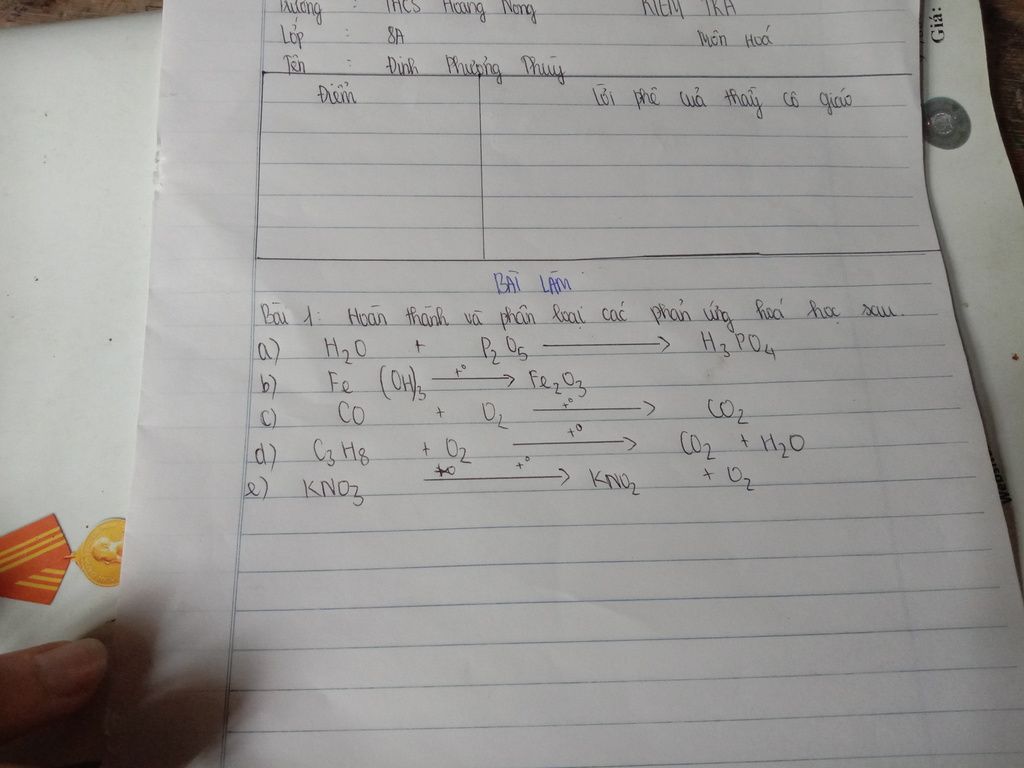 Trường : THCS Hoàng Nông KIỂM TRA
Lớp : 8A Môn Hoá
Tên : Đinh Phương Thuý
Điểm Lời phê của thầy cô giáo
BÀI LÀM
Bài 1: Hoàn thành và phân loại các phản ứng hoá học sau.
a) H₂O + P₂O₅ ⟶ H₃PO₄
b) Fe (OH)₃ t° ⟶ Fe₂O₃
c) CO + O₂ t° ⟶ CO₂
d) C₃H₈ + O₂ t° ⟶ CO₂ + H₂O
e) KNO₃ t° ⟶ KNO₂ + O₂
Giá: